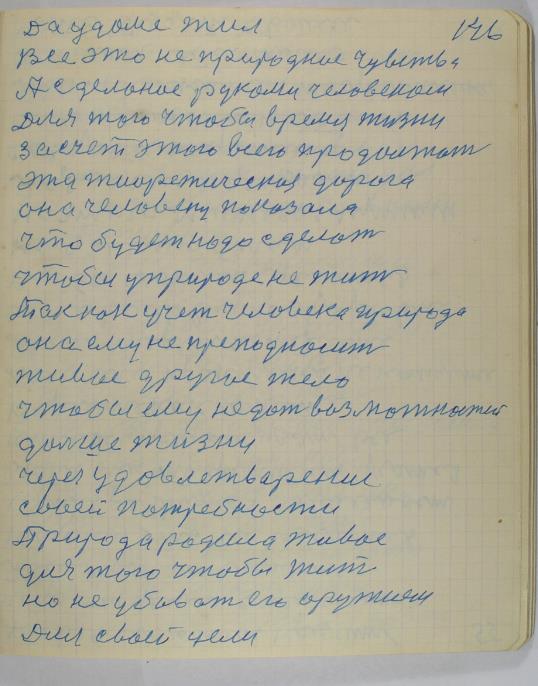 да у доме жил 146
все это не природное чувств.
А сделоное рукоми человеком
для того чтобы время жизни
за счет этого всего продолжат
эта тиоретическая дорога
она человеку показала
что будет надо сделат
чтобы у природе не жит
Так как учет человека природа
она ему не преподносит
живое другое тело
чтобы ему не дат возможностей
дольше жизни
через удовлетварении
своей потребности
Природа родила живое
для того чтобы жит
но не убиват его оружием
для своей цели